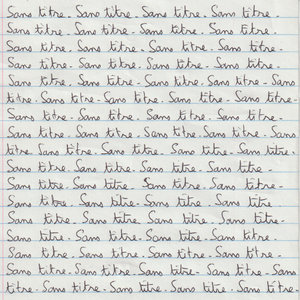 Sans titre. Sans titre. Sans titre. Sans titre.
Sans titre. Sans titre. Sans titre. Sans titre.
Sans titre. Sans titre. Sans titre. Sans titre.
Sans titre. Sans titre. Sans titre. Sans titre.
Sans titre. Sans titre - Sans titre. Sans titre. Sans
titre. Sans titre - Sans titre. Sans titre. Sans titre.
Sans titre. Sans titre. Sans titre. Sans titre.
Sans titre. Sans titre. Sans titre. Sans titre. Sans
titre. Sans titre. Sans titre. Sans titre. Sans titre.
Sans titre. Sans titre. Sans titre. Sans titre -
Sans titre. Sans titre. Sans titre. Sans titre -
Sans titre. Sans titre - Sans titre. Sans titre
Sans titre. Sans titre. Sans titre. Sans titre.
Sans titre. Sans titre. Sans titre. Sans titre.
Sans titre. Sans titre. Sans titre. Sans titre.
Sans titre. Sans titre. Sans titre. Sans titre. Sans
titre. Sans titre. Sans titre. Sans titre. Sans titre.